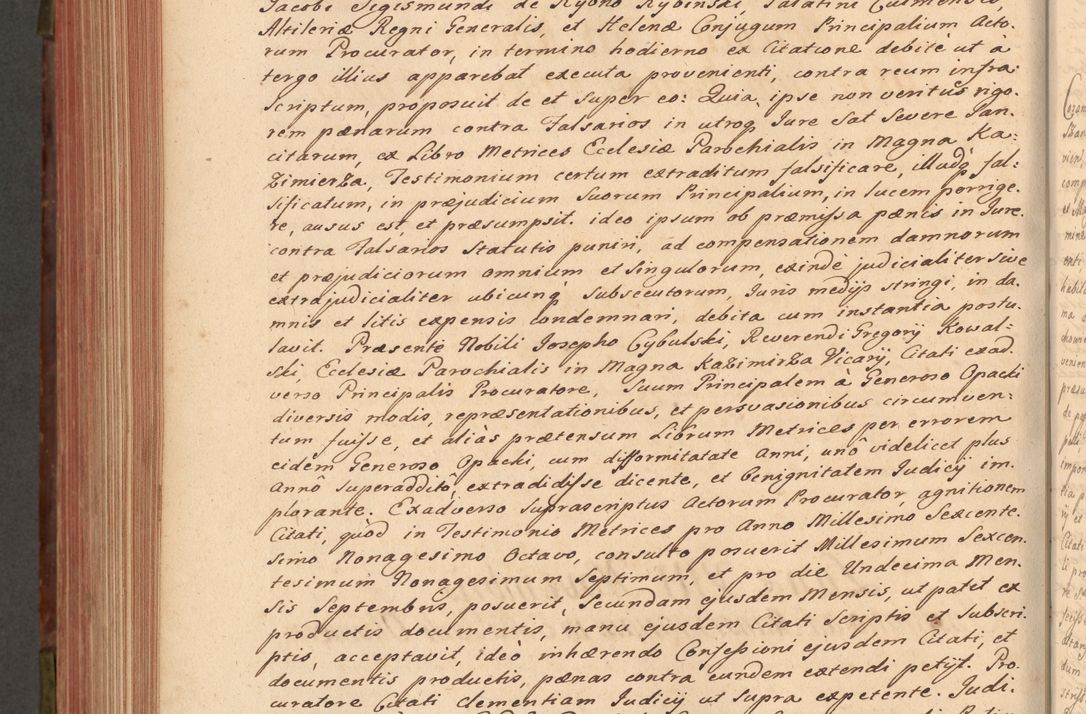 Jacobi Sigismundi de Kyono Rybinski, Palatini Culmensis,
Altileriæ Regni Generalis, et Helenæ Conjugum Principalium Acto-
rum Procurator, in termino hodierno ex Citatione debitè ut à
tergo illius apparebat executa provenienti, contra reum infra-
scriptum, proposuit de et super eo: Quia, ipse non veritus rigo-
rem pænarum contra Falsarios in utroq Jure sat severe San-
citarum, ex Libro Metrices Ecclesiæ Parochialis in Magna Ka-
zimierza, Testimonium certum extraditum falsificare, illudq fal-
sificatum, in præjudicium suorum Principalium, in lucem porrige-
re, ausus est, et præsumpsit. ideo ipsum ob præmissa pænis in Jure
contra Falsarios statutis puniri, ad compensationem damnorum
et præjudiciorum omnium et singulorum, exindè judicialiter sive
extrajudicialiter ubicunq subsecutorum, Juris medijs stringi, in da-
mnis et litis expensis condemnari, debita cum instantia postu-
lavit. Præsente Nobili Josepho Cybulski, Reverendi Gregorij Kowal-
ski, Ecclesiæ Parochialis in Magna Kazimirza Vicarij, Citati exad-
verso Principalis Procuratore, Suum Principalem à Generoso Opacki
diversis modis, repræsentationibus, et persvasionibus circumven-
tum fuisse, et aliàs prætensum Librum Metrices per errorem
eidem Generoso Opacki, cum difformitatate Anni, unô videlicet plus
annô superadditô, extradidisse dicente, et benignitatem Judicij im-
plorante. Exadverso suprascriptus Actorum Procurator, agnitionem
Citati, quòd in Testimonio Metrices pro Anno Millesimo Sexcente-
simo Nonagesimo Octavo, consulto posuerit Millesimum Sexcen-
tesimum Nonagesimum Septimum, et pro die Undecima Men-
sis Septembris, posuerit, Secundam ejusdem Mensis, ut patet ex
productis documentis, manu ejusdem Citati Scriptis et Subscri-
ptis, acceptavit, ideò inhærendo Confessioni ejusdem Citati, et
documentis productis, pænas contra eundem extendi petijt. Pro-
curatore Citati clementiam Judicij ut supra expetente. Judi-